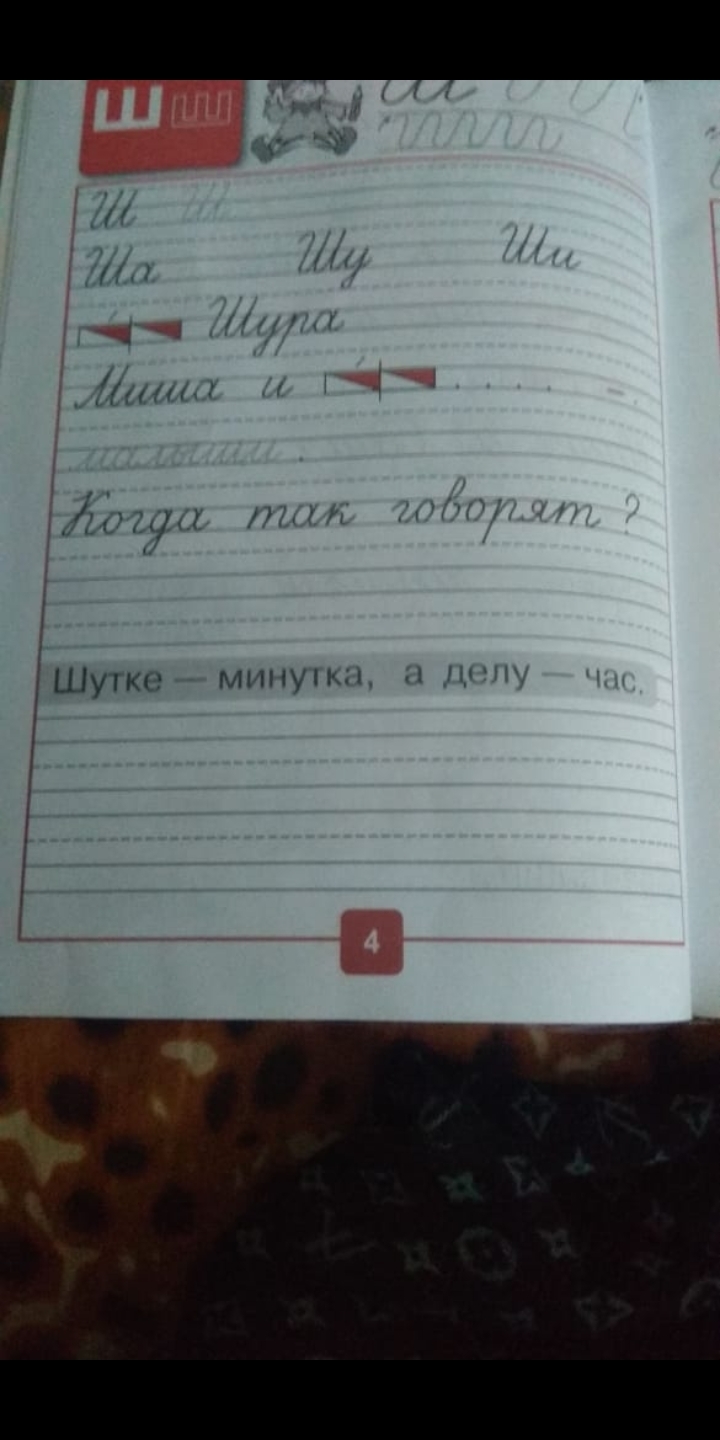 Ш Ш
Ш Ш
Ша Шу Ши
Шура
Миша и . . . . – .
малыши .
Когда так говорят ?
Шутке — минутка, а делу — час.
4